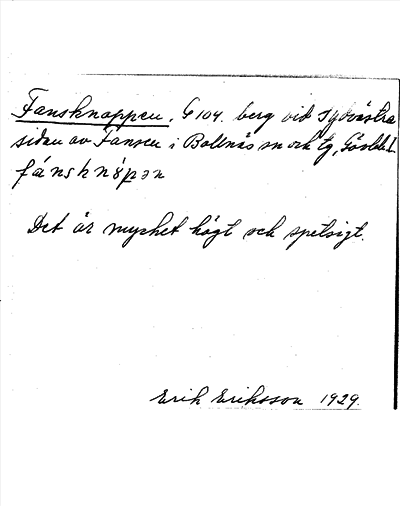 Fansknappen, G 104. berg vid sydvästra
sidan av Fansen i Bollnäs sn och tg, Gävlebl.
fánsknápen
Det är mycket högt och spetsigt.
Erik Eriksson 1929.